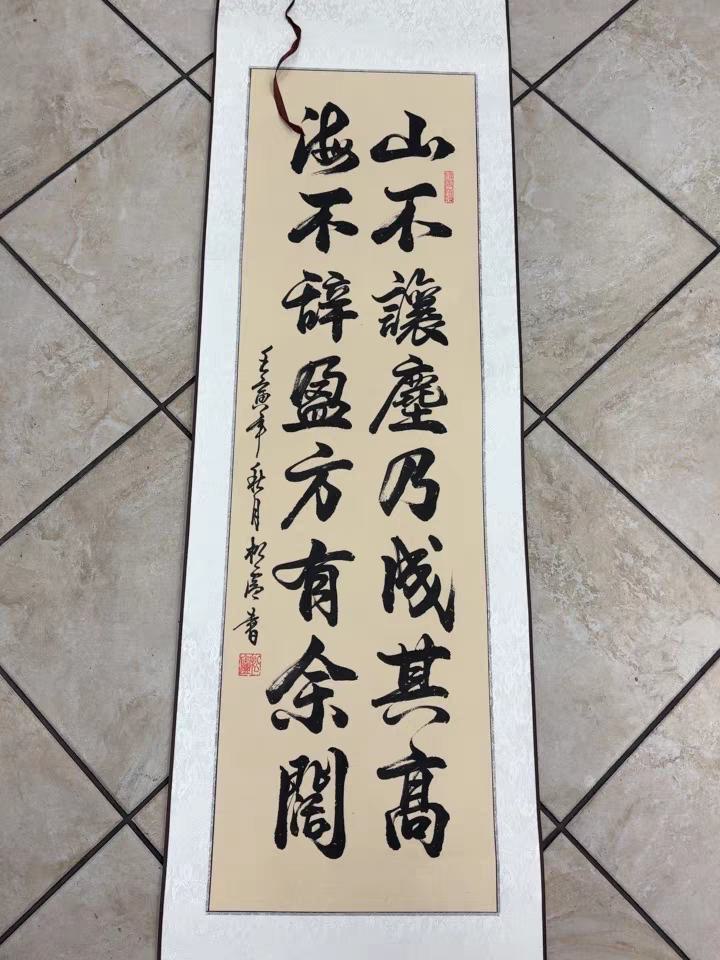 山不讓塵乃成其高
海不辞盈方有余闊
壬寅年秋月松廬書